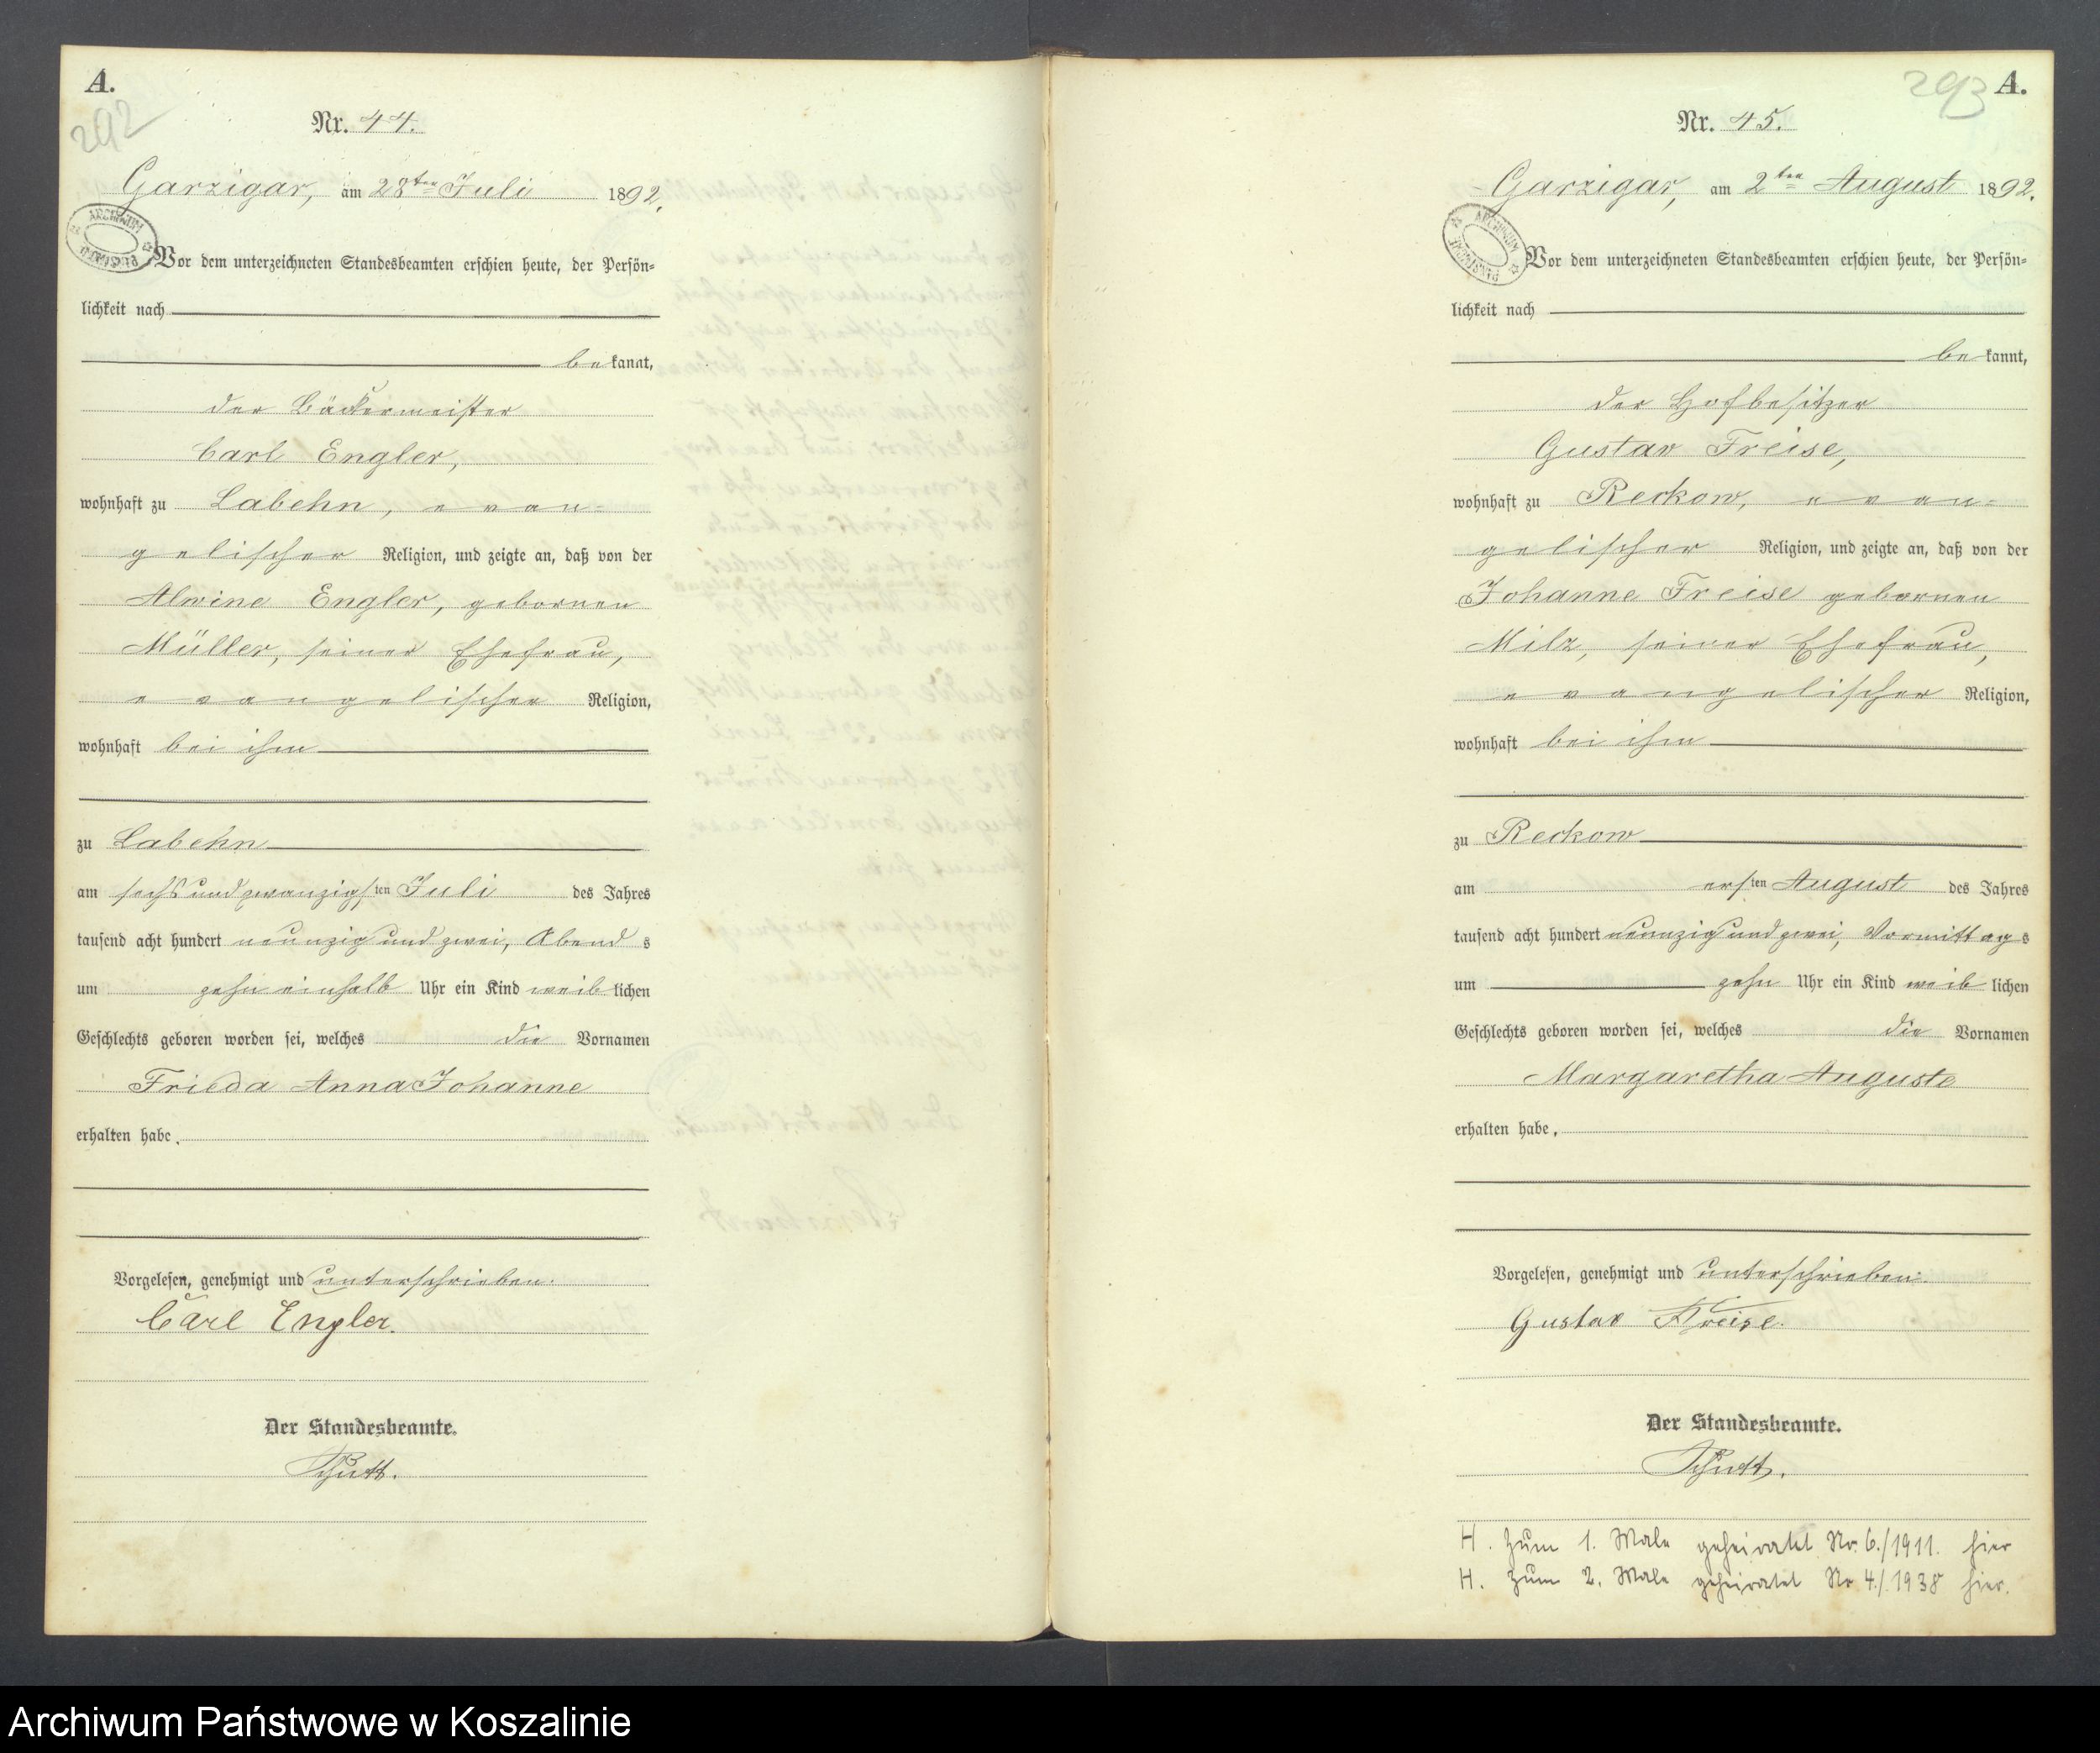 A.
292
Nr. 44.
Garzigar, am 28ten Juli 1892.
Vor dem unterzeichneten Standesbeamten erschien heute, der Persön=
lichkeit nach
bekannt,
der Bäckermeister
Carl Engler,
wohnhaft zu Labehn, evan=
gelischer Religion, und zeigte an, daß von der
Alwine Engler, gebornen
Müller, seiner Ehefrau,
evangelischer Religion,
wohnhaft bei ihm
zu Labehn
am sechsundzwanzigsten Juli des Jahres
tausend acht hundert neunzig und zwei, Abends
um zehn einhalb Uhr ein Kind weiblichen
Geschlechts geboren worden sei, welches die Vornamen
Frieda Anna Johanne
erhalten habe.
Vorgelesen, genehmigt und unterschrieben.
Carl Engler.
Der Standesbeamte.
293
A.
Nr. 45.
Garzigar, am 2ten August 1892.
Vor dem unterzeichneten Standesbeamten erschien heute, der Persön=
lichkeit nach
bekannt,
der Hofbesitzer
Gustav Freise,
wohnhaft zu Reckow, evan=
gelischer Religion, und zeigte an, daß von der
Johanne Freise gebornen
Milz, seiner Ehefrau,
evangelischer Religion,
wohnhaft bei ihm
zu Reckow
am ersten August des Jahres
tausend acht hundert neunzig und zwei, Vormittags
um zehn Uhr ein Kind weiblichen
Geschlechts geboren worden sei, welches die Vornamen
Margaretha Auguste
erhalten habe.
Vorgelesen, genehmigt und unterschrieben.
Gustav Freise.
Der Standesbeamte.
H. Zum 1. Male geheiratet Nr. 6./1911. hier
H. Zum 2. Male geheiratet Nr 4./1938 hier.
ARCHIWUM PAŃSTWOWE
ARCHIWUM PAŃSTWOWE
Archiwum Państwowe w Koszalinie